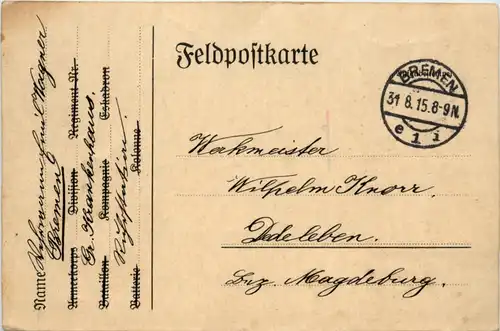 Feldpostkarte
BREMEN
31 8.15.8-9N.
e 1 i
Wilhelm Knorr.
Bez. Magdeburg.
Name Wehrmann Emil Wagner
Bremen
Armeekorps Division Regiment Nr.
Gr. Krankenhaus,
Bataillon Kompagnie Eskadron
Batterie Kolonne